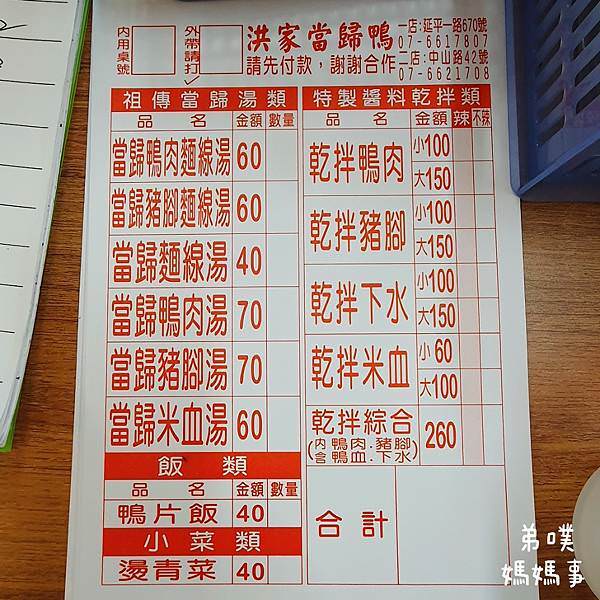 內用桌號
外帶請打✓
洪家當歸鴨
請先付款，謝謝合作
一店:延平一路670號
07-6617807
二店:中山路42號
07-6621708
祖傳當歸湯類
品名 金額 數量
當歸鴨肉麵線湯 60
當歸豬腳麵線湯 60
當歸麵線湯 40
當歸鴨肉湯 70
當歸豬腳湯 70
當歸米血湯 60
飯類
品名 金額 數量
鴨片飯 40
小菜類
燙青菜 40
特製醬料乾拌類
品名 金額 辣 不辣
乾拌鴨肉 小100
大150
乾拌豬腳 小100
大150
乾拌下水 小100
大150
乾拌米血 小60
大100
乾拌綜合 260
(內含鴨肉.豬腳
鴨血.下水)
合計
弟噗
媽媽事